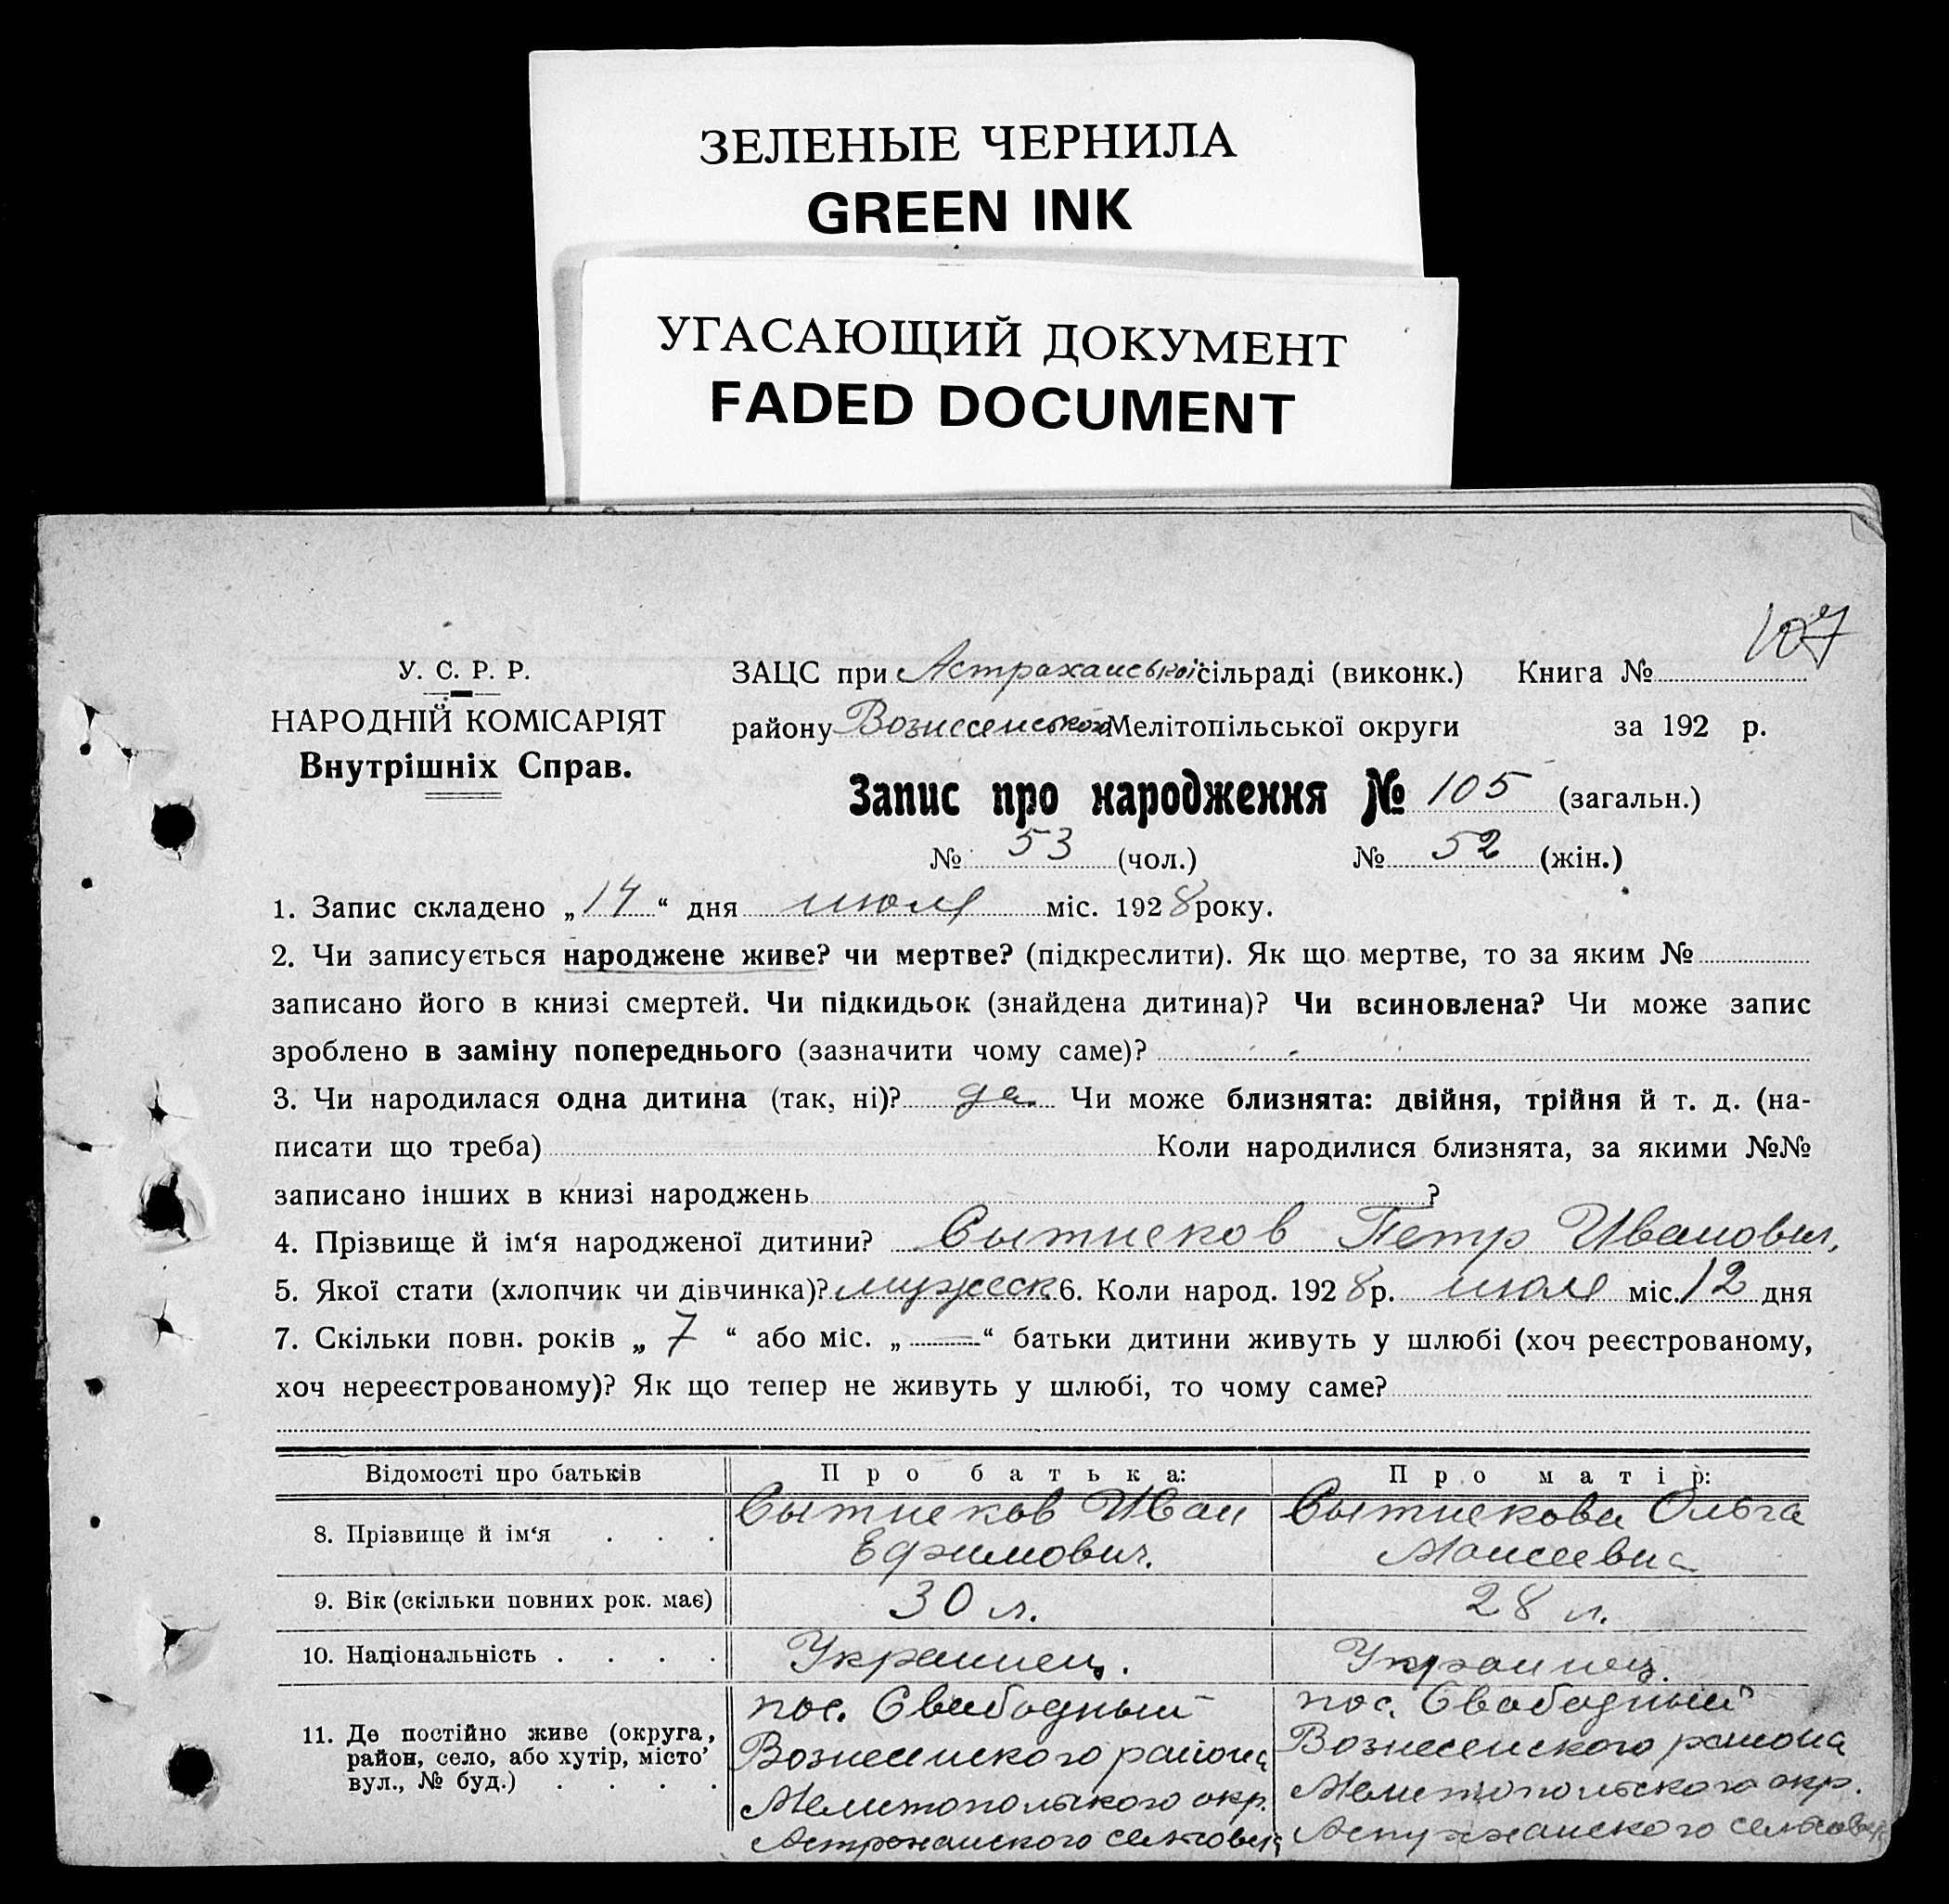 ЗЕЛЕНЫЕ ЧЕРНИЛА
GREEN INK
УГАСАЮЩИЙ ДОКУМЕНТ
FADED DOCUMENT
107
У. С. Р. Р.
НАРОДНІЙ КОМІСАРІЯТ
Внутрішніх Справ.
ЗАЦС при Астраханської сільраді (виконк.) Книга №
району Вознесенського Мелітопільської округи за 192 р.
Запис про народження № 105 (загальн.)
№ 53 (чол.) № 52 (жін.)
1. Запис складено „14“ дня июля міс. 1928 року.
2. Чи записується народжене живе? чи мертве? (підкреслити). Як що мертве, то за яким №
записано його в книзі смертей. Чи підкидьок (знайдена дитина)? Чи всиновлена? Чи може запис
зроблено в заміну попереднього (зазначити чому саме)?
3. Чи народилася одна дитина (так, ні)? да. Чи може близнята: двійня, трійня й т. д. (на-
писати що треба) Коли народилися близнята, за якими №№
записано інших в книзі народжень ?
4. Прізвище й ім‘я народженої дитини? Сытников Петр Иванович,
5. Якої стати (хлопчик чи дівчинка)? мужеск 6. Коли народ. 1928 р. июля міс. 12 дня
7. Скільки повн. років „ 7 “ або міс. „ — “ батьки дитини живуть у шлюбі (хоч реєстрованому,
хоч нереєстрованому)? Як що тепер не живуть у шлюбі, то чому саме?
Відомості про батьків Про батька: Про матір:
8. Прізвище й ім‘я . . . Сытников Иван Ефимович. Сытникова Ольга Моисеевна
9. Вік (скільки повних рок. має) 30 л. 28 л.
10. Національність . . . . Украинец. Украинец.
11. Де постійно живе (округа, район, село, або хутір, місто, вул., № буд.) . . . .
пос. Свабодный
Вознесенского района
Мелитопольского окр.
Астраханского сельсовета
пос. Свабодный
Вознесенского района
Мелитопольского окр.
Астраханского сельсовета